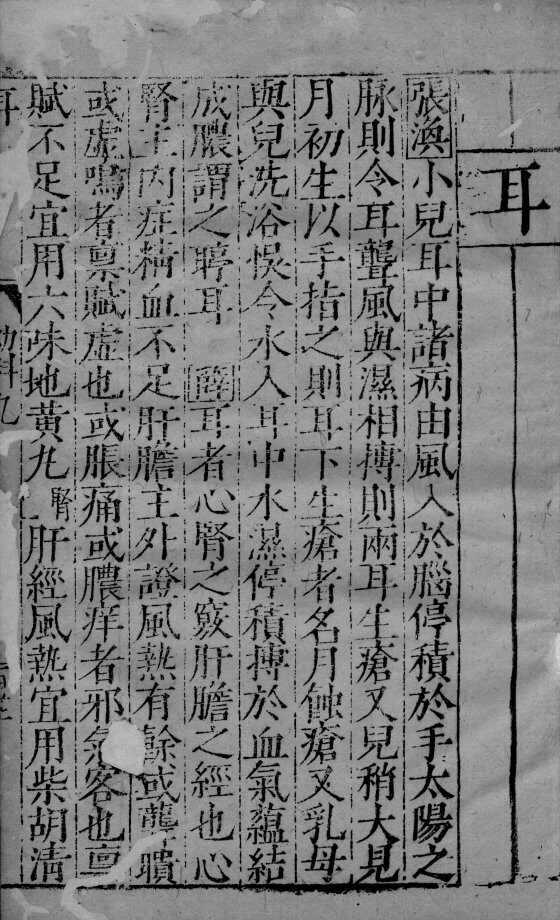 耳
張渙小兒耳中諸病由風入於腦停積於手太陽之
脉則令耳聾風與濕相搏則兩耳生瘡又兒稍大見
月初生以手指之則耳下生瘡者名月蝕瘡又乳母
與兒洗浴悞令水入耳中水濕停積搏於血氣蘊結
成膿謂之聤耳 薛耳者心腎之竅肝膽之經也心
腎主内症精血不足肝膽主外證風熱有餘或聾聵
或虛鳴者禀賦虛也或脹痛或膿痒者邪氣客也禀
賦不足宜用六味地黄丸腎肝經風熱宜用柴胡清
耳
幼科九